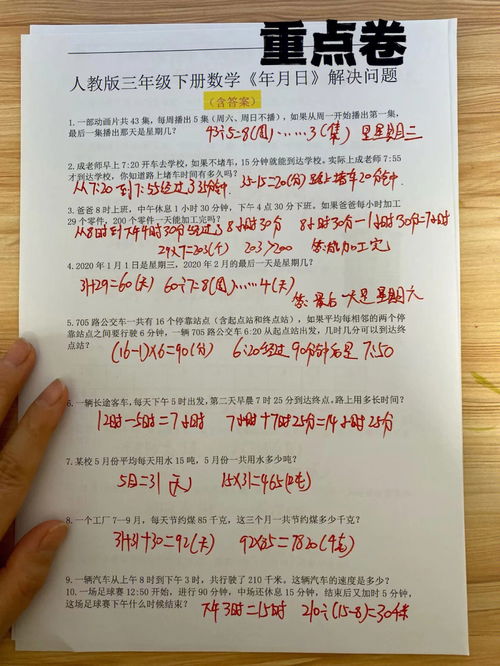 重点卷
人教版三年级下册数学《年月日》解决问题
(含答案)
1.一部动画片共 43 集，每周播出 5 集（周六、周日不播），如果从周一开始播出第一集，
最后一集播出那天是星期几？
43÷5=8(周)……3(集) 是星期三
2.成老师早上 7:20 开车去学校，如果不堵车，15 分钟就能到达学校。实际上成老师 7:55
才到达学校，你知道路上堵车时间有多久吗？
从7:20到7:55经过35分钟 35-15=20(分) 路上堵车20分钟
3.爸爸 8 时上班，中午休息 1 小时 30 分钟，下午 4 点 30 分下班。如果爸爸每小时加工
29 个零件，200 个零件一天能加工完吗？
从8时到下午4时30分经过了8小时30分 8小时30分-1小时30分=7小时
29×7=203(个) 203>200 答:能加工完
4.2020 年 1 月 1 日是星期三，2020 年 2 月的最后一天是星期几？
31+29=60(天) 60÷7=8(周)……4(天)
答:最后一天是星期六
5.705 路公交车一共有 16 个停靠站点（含起点站和终点站），如果平均每相邻的两个停
靠站点之间要行驶 6 分钟，一辆 705 路公交车 6:20 从起点站出发，几时几分可以到达终
点站？
(16-1)×6=90(分) 6:20经过90分钟后是7:50
6.一辆长途客车，每天下午 5 时出发，第二天早晨 7 时 25 分到达终点。路上用多长时间？
12时-5时=7小时 7小时+7时25分=14小时25分
7.某校 5 月份平均每天用水 15 吨，5 月份一共用水多少吨？
5月=31天 15×31=465(吨)
8.一个工厂 7—9 月，每天节约煤 85 千克，这三个月一共节约煤多少千克？
31+31+30=92(天) 92×85=7820(千克)
9.一辆汽车从上午 8 时到下午 3 时，共行驶了 210 千米，这辆汽车的速度是多少？
10.一场足球赛 12:50 开始，进行 90 分钟，中场还休息 15 分钟，结束后又加时 5 分钟，
这场足球赛下午什么时候结束？
下午3时=15时 210÷(15-8)=30千米